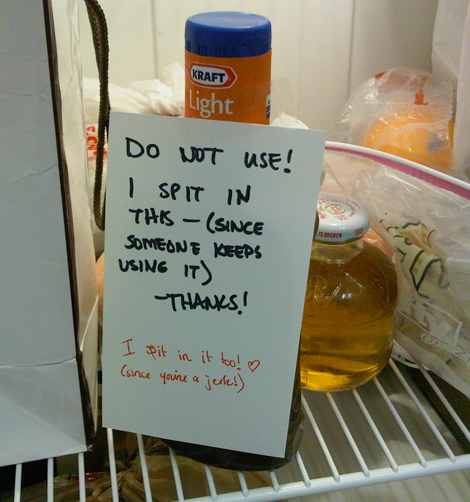 KRAFT
Light
DO NOT USE!
I SPIT IN
THIS — (SINCE
SOMEONE KEEPS
USING IT)
-THANKS!
I spit in it too! ♡
(since you're a jerk!)